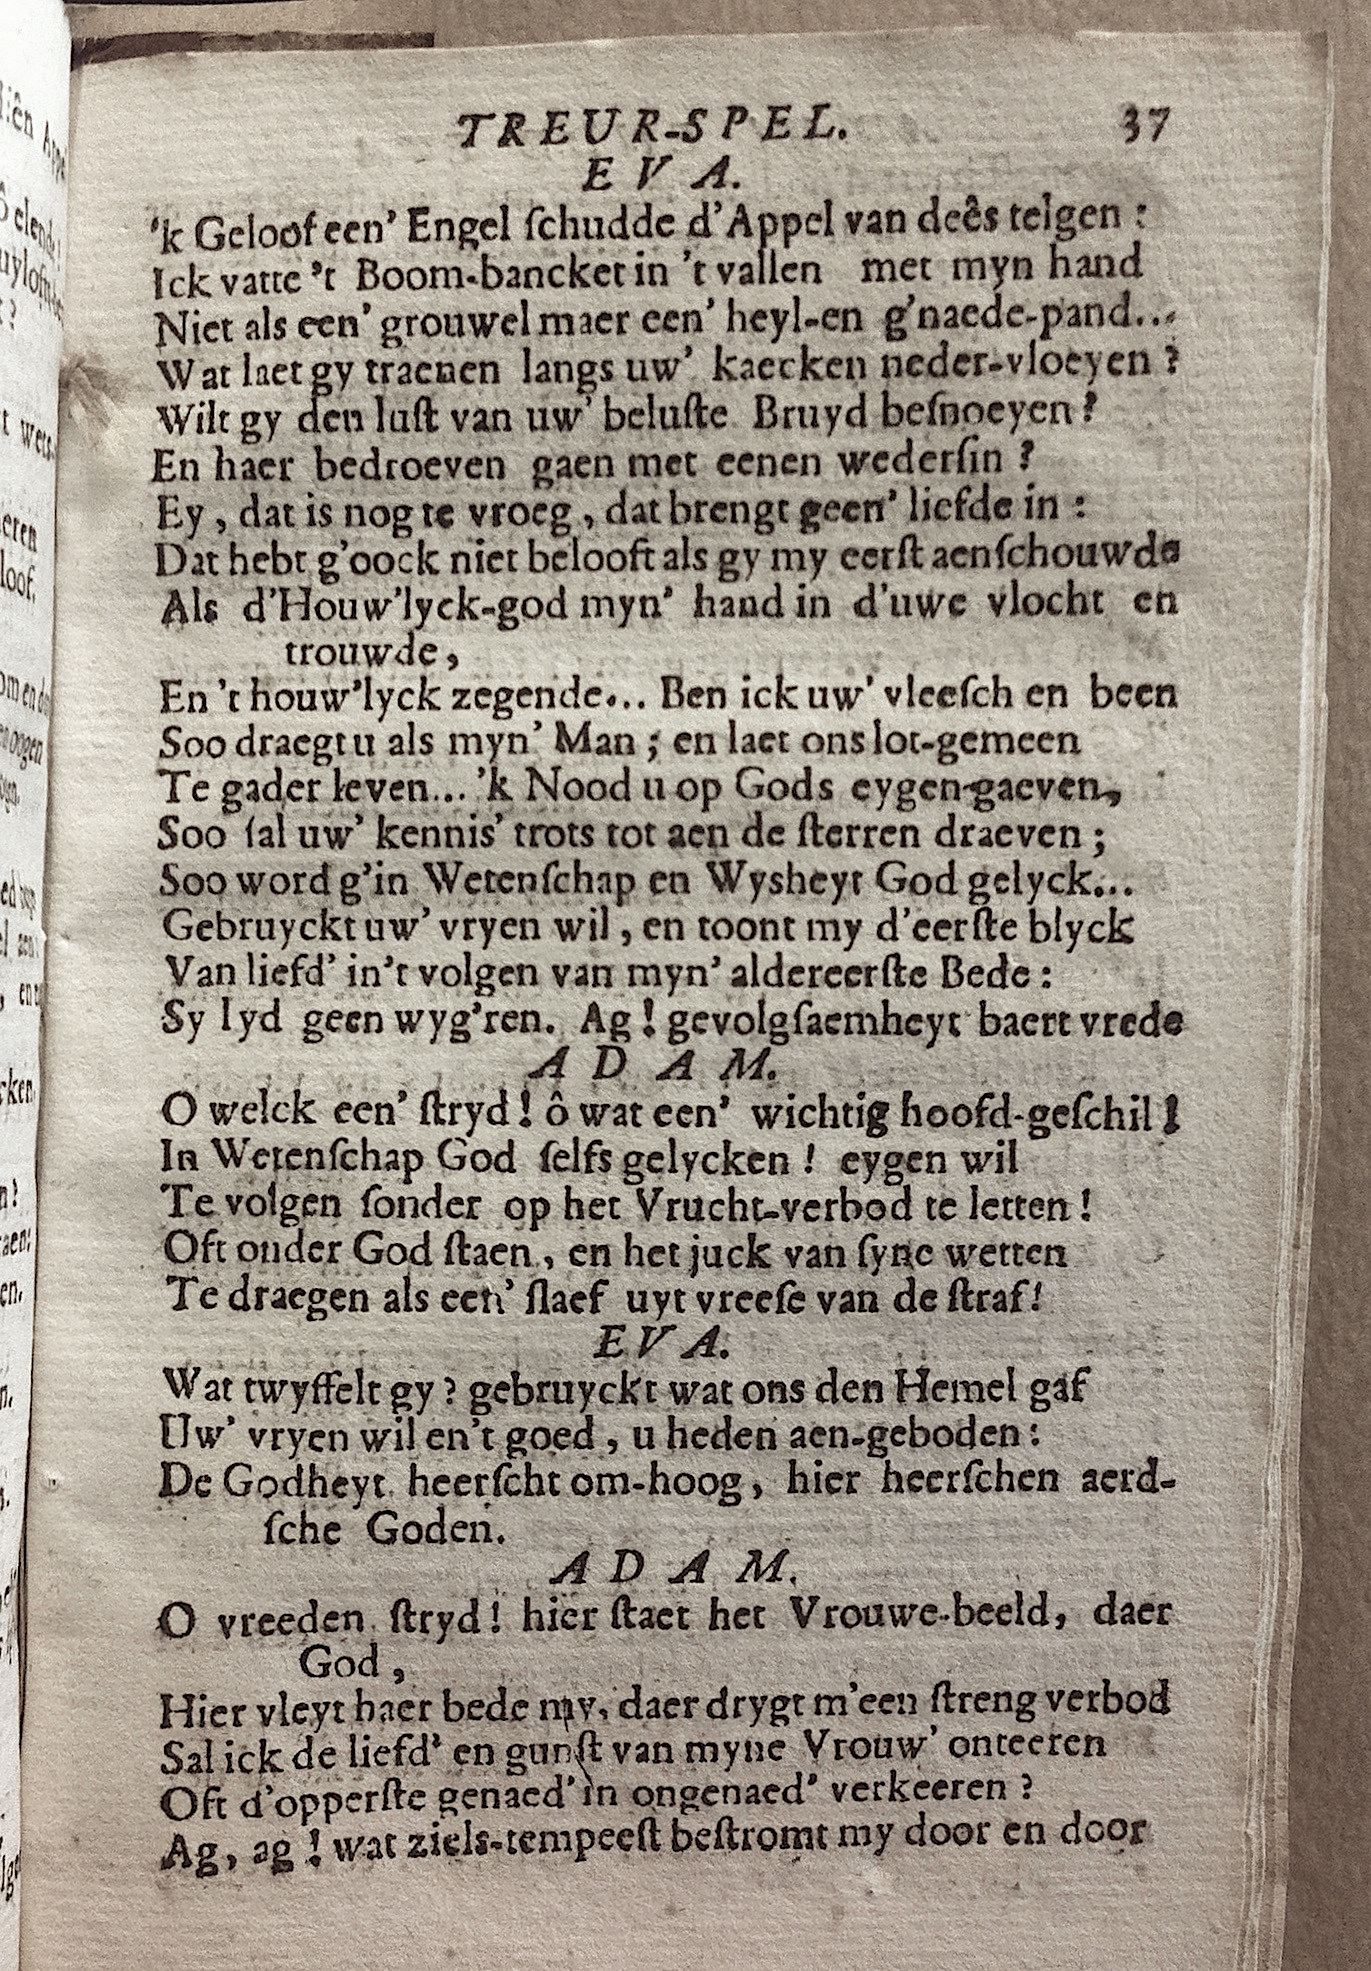 TREUR-SPEL. 37
EVA.
'k Geloof een' Engel ſchudde d'Appel van deês telgen :
Ick vatte 't Boom-bancket in 't vallen met myn hand
Niet als een' grouwel maer een' heyl-en g'naede-pand...
Wat laet gy traenen langs uw' kaecken neder-vloeyen ?
Wilt gy den luſt van uw' beluſte Bruyd beſnoeyen ?
En haer bedroeven gaen met eenen wederſin ?
Ey, dat is nog te vroeg, dat brengt geen' liefde in :
Dat hebt g'oock niet belooft als gy my eerſt aenſchouwde
Als d'Houw'lyck-god myn' hand in d'uwe vlocht en
trouwde,
En 't houw'lyck zegende... Ben ick uw' vleeſch en been
Soo draegt u als myn' Man ; en laet ons lot-gemeen
Te gader leven... 'k Nood u op Gods eygen-gaeven,
Soo ſal uw' kennis' trots tot aen de ſterren draeven ;
Soo word g'in Wetenſchap en Wysheyt God gelyck...
Gebruyckt uw' vryen wil, en toont my d'eerſte blyck
Van liefd' in't volgen van myn' aldereerſte Bede :
Sy lyd geen wyg'ren. Ag ! gevolgſaemheyt baert vrede
ADAM.
O welck een' ſtryd ! ô wat een' wichtig hoofd-geſchil !
In Wetenſchap God ſelfs gelycken ! eygen wil
Te volgen ſonder op het Vrucht-verbod te letten !
Oft onder God ſtaen, en het juck van ſyne wetten
Te draegen als een' ſlaef uyt vreeſe van de ſtraf !
EVA.
Wat twyffelt gy ? gebruyckt wat ons den Hemel gaf
Uw' vryen wil en't goed, u heden aen-geboden :
De Godheyt heerſcht om-hoog, hier heerſchen aerd-
ſche Goden.
ADAM.
O vreeden ſtryd ! hier ſtaet het Vrouwe-beeld, daer
God,
Hier vleyt haer bede my, daer drygt m'een ſtreng verbod
Sal ick de liefd' en gunſt van myne Vrouw' onteeren
Oft d'opperſte genaed' in ongenaed' verkeeren ?
Ag, ag ! wat ziels-tempeeſt beſtromt my door en door